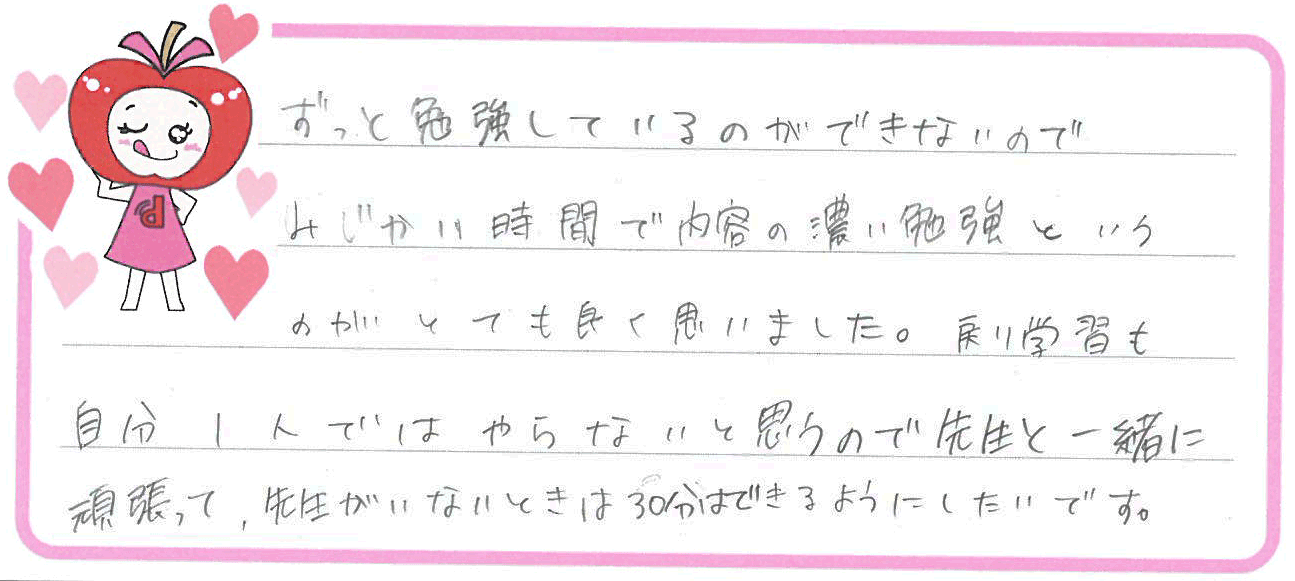 ずっと勉強しているのができないので
みじかい時間で内容の濃い勉強という
のがとても良く思いました。戻り学習も
自分1人ではやらないと思うので先生と一緒に
頑張って、先生がいないときは30分はできるようにしたいです。